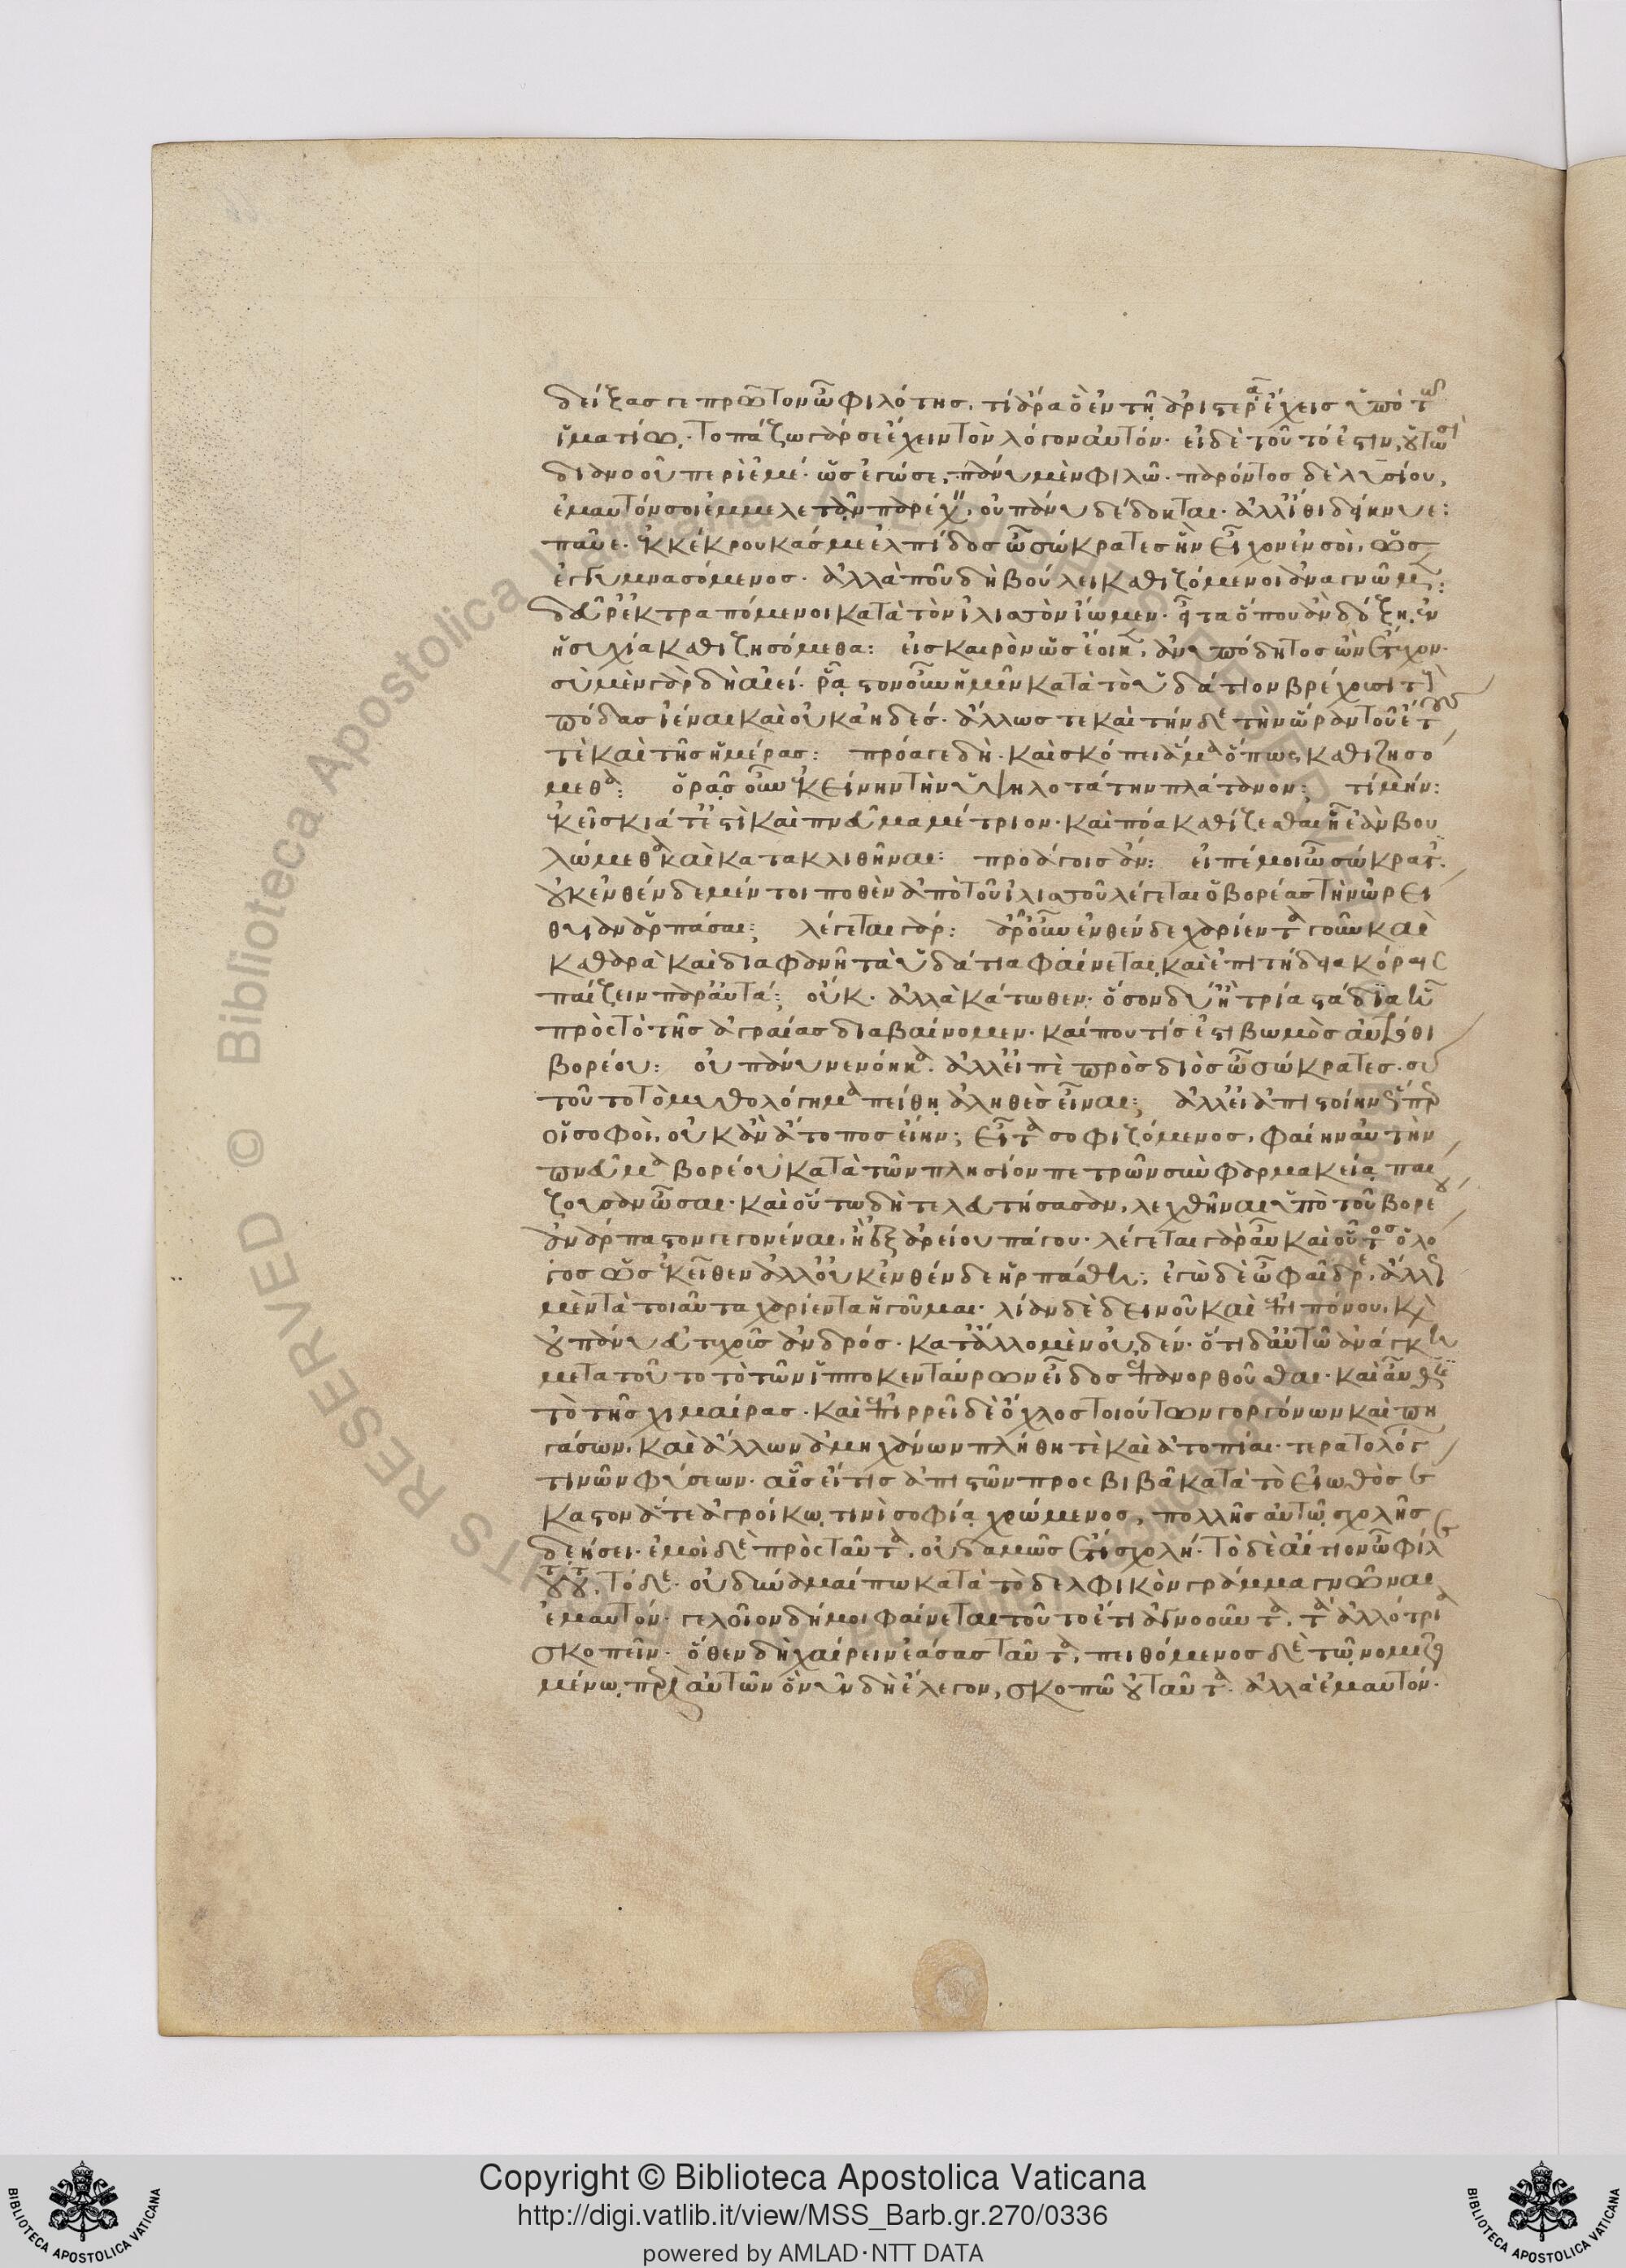 δείξας γε πρῶτον ὦ φιλότης. τί ἄρα ὃ ἐν τῇ ἀριστερᾷ ἔχεις ὑπὸ τῶ
ἱματίω. τοπάζω γάρ σε ἔχειν τὸν λόγον αὐτόν. εἰ δὲ τοῦτό ἐστιν, οὑτωσὶ
διανοοῦ περὶ ἐμέ. ὡς ἐγώ σε, πάνυ μὲν φιλῶ. παρόντος δὲ λυσίου,
ἐμαυτόν σοι ἐμμελετᾶν παρέχειν, οὐ πάνυ δέδοκται. ἀλλ' ἴθι δείκνυε:
παῦε. ἐκκέκρουκάς με ἐλπίδος ὦ σώκρατες ἣν εἶχον ἐν σοὶ, ὡς
ἐγγυμνασόμενος. ἀλλὰ ποῦ δὴ βούλει καθιζόμενοι ἀναγνῶμεν:
δεῦρ' ἐκτραπόμενοι κατὰ τὸν ἰλισσὸν ἴωμεν. εἶτα ὅπου ἂν δόξῃ, ἐν
ἡσυχία καθιζησόμεθα: εἰς καιρὸν ὡς ἔοικεν, ἀνυπόδητος ὢν ἔτυχον.
σὺ μὲν γὰρ δὴ ἀεί. ῥᾷστον οὖν ἡμῖν κατὰ τὸ ὑδάτιον βρέχουσι τοὺς
πόδας ἰέναι καὶ οὐκ ἀηδές. ἄλλως τε καὶ τήνδε τὴν ὥραν τοῦ ἔτους
τὲ καὶ τῆς ἡμέρας: πρόαγε δὴ. καὶ σκόπει ἅμα ὅπως καθιζησό
μεθα: ὁρᾷς οὖν ἐκείνην τὴν ὑψηλοτάτην πλάτανον: τί μήν:
ἐκεῖ σκιά τ' ἐστὶ καὶ πνεῦμα μέτριον. καὶ πόα καθίζεσθαι ἢ ἐὰν βου
λώμεθα καὶ κατακλιθῆναι: προάγοις ἄν: εἰπέ μοι ὦ σώκρατες.
οὐκ ἐνθένδε μέντοι ποθὲν ἀπὸ τοῦ ἰλισσοῦ λέγεται ὁ βορέας τὴν ὠρεί
θυιαν ἁρπάσαι; λέγεται γάρ: ἆρ' οὖν ἐνθένδε χαρίεντα γοῦν καὶ
καθαρὰ καὶ διαφανῆ τὰ ὑδάτια φαίνεται, καὶ ἐπιτήδεια κόραις
παίζειν παρ' αὐτά; οὔκ. ἀλλὰ κάτωθεν. ὅσον δύ' ἢ τρία στάδια ἧ
πρὸς τὸ τῆς ἀγραίας διαβαίνομεν. καί που τίς ἐστι βωμὸς αὐτόθι
βορέου: οὐ πάνυ νενόηκα. ἀλλ' εἰπὲ πρὸς διὸς ὦ σώκρατες. σὺ
τοῦτο τὸ μυθολόγημα πείθῃ ἀληθὲς εἶναι; ἀλλ' εἰ ἀπιστοίην ὥσπερ
οἱ σοφοὶ, οὐκ ἂν ἄτοπος εἴην; εἶτα σοφιζόμενος, φαίην αὐτὴν
πνεῦμα βορέου κατὰ τῶν πλησίον πετρῶν σὺν φαρμακεία παί
ζουσαν ὦσαι. καὶ οὕτω δὴ τελευτήσασαν, λεχθῆναι ὑπὸ τοῦ βορέου
ἀνάρπαστον γεγονέναι, ἢ ἐξ ἀρείου πάγου. λέγεται γὰρ αὖ καὶ οὗτος ὁ λό
γος ὡς ἐκεῖθεν ἀλλ' οὐκ ἐνθένδε ἡρπάσθη; ἐγὼ δὲ ὦ φαῖδρε, ἄλλως
μὲν τὰ τοιαῦτα χαρίεντα ἡγοῦμαι. λίαν δὲ δεινοῦ καὶ ἐπιπόνου, καὶ
οὐ πάνυ εὐτυχοῦς ἀνδρός. κατ' ἄλλο μὲν οὐδέν. ὅτι δ' αὐτῶ ἀνάγκη
μετὰ τοῦτο τὸ τῶν ἱπποκενταύρων εἶδος ἐπανορθοῦσθαι. καὶ αὖθις
τὸ τῆς χιμαίρας. καὶ ἐπιρρεῖ δὲ ὄχλος τοιούτων γοργόνων καὶ πη
γάσων. καὶ ἄλλων ἀμηχάνων πλήθη τὲ καὶ ἀτοπίαι. τερατολόγων
τινῶν φύσεων. αἷς εἴ τις ἀπιστῶν προσβιβᾷ κατὰ τὸ εἰωθὸς ἕ
καστον ἅτε ἀγροίκω τινὶ σοφίᾳ χρώμενος, πολλῆς αὐτῷ σχολῆς
δεήσει. ἐμοὶ δὲ πρὸς ταῦτα, οὐδαμῶς ἐστι σχολή. τὸ δὲ αἴτιον ὦ φίλε
τούτου, τόδε. οὐ δύναμαί πω κατὰ τὸ δελφικὸν γράμμα γνῶναι
ἐμαυτόν. γελοῖον δή μοι φαίνεται τοῦτο ἔτι ἀγνοοῦντα, τὰ ἀλλότρια
σκοπεῖν. ὅθεν δὴ χαίρειν ἐάσας ταῦτα, πειθόμενος δὲ τῷ νομιζο
μένῳ περὶ αὐτῶν ὃ νῦν δὴ ἔλεγον, σκοπῶ οὐ ταῦτα. ἀλλὰ ἐμαυτόν.
© Biblioteca Apostolica Vaticana ALL RIGHTS RESERVED
Copyright © Biblioteca Apostolica Vaticana
http://digi.vatlib.it/view/MSS_Barb.gr.270/0336
powered by AMLAD·NTT DATA
BIBLIOTECA APOSTOLICA VATICANA
BIBLIOTECA APOSTOLICA VATICANA